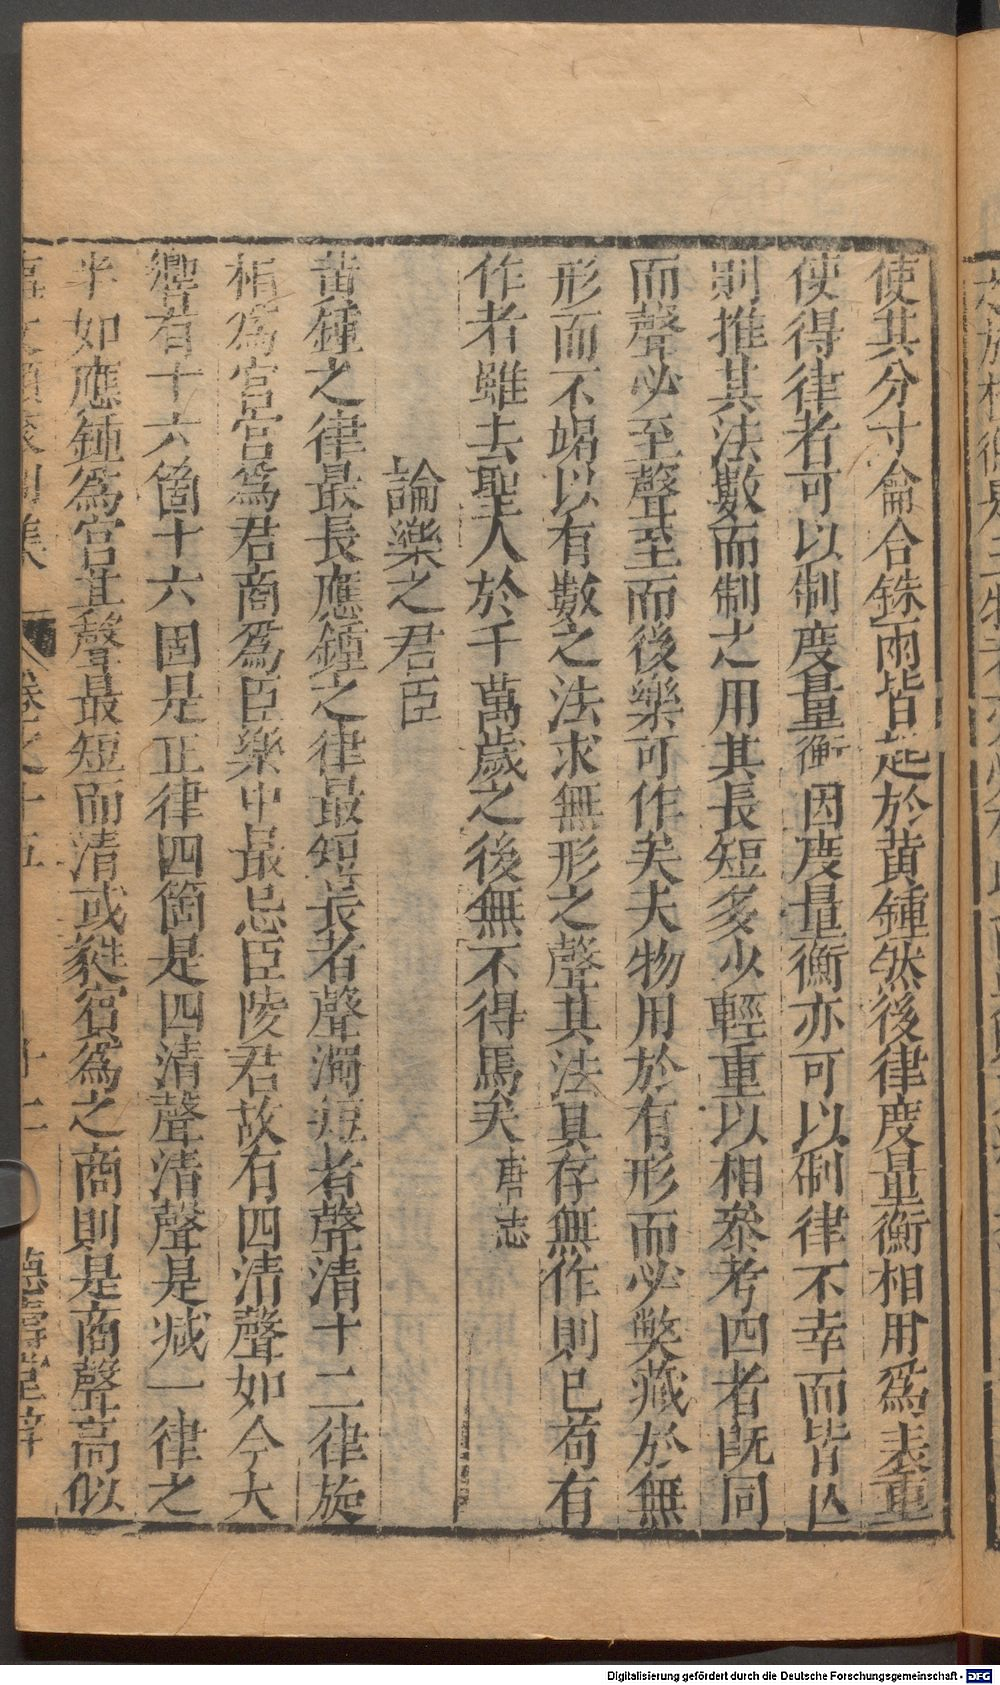 使其分寸龠合銖兩皆起於黃鍾然後律度量衡相用爲表裏
使得律者可以制度量衡因度量衡亦可以制律不幸而皆亡
則推其法數而制之用其長短多少輕重以相叅考四者既同
而聲必至聲至而後樂可作矣夫物用於有形而必獘藏於無
形而不竭以有數之法求無形之聲其法具存無作則已苟有
作者雖去聖人於千萬歲之後無不得焉矣 唐志
論樂之君臣
黃鍾之律最長應鍾之律最短長者聲濁短者聲清十二律旋
相爲宮宮爲君商爲臣樂中最忌臣陵君故有四清聲如今大
響有十六箇十六固是正律四箇是四清聲清聲是減一律之
半如應鍾爲宮其聲最短而清或蕤賓爲之商則是商聲高似
集 卷之十五 十二 德壽堂梓
Digitalisierung gefördert durch die Deutsche Forschungsgemeinschaft - DFG